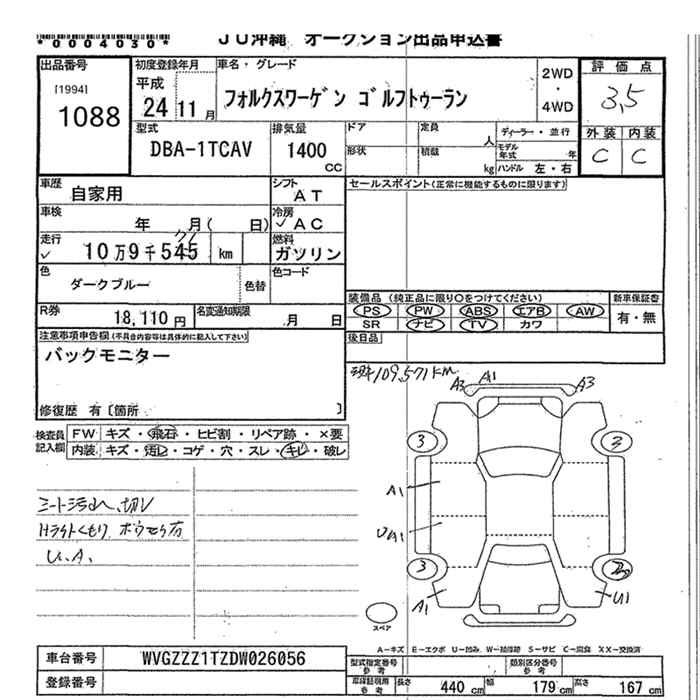 *0004030*
JU沖縄 オークション出品申込書
出品番号
[1994]
1088
初度登録年月
平成
24 11 月
車名・グレード
フォルクスワーゲン ゴルフトゥーラン
2WD
・
4WD
評価点
3,5
外装 内装
C C
型式
DBA-1TCAV
排気量
1400
CC
ドア
形状
定員
人
積載
kg
ディーラー・並行
モデル年式 年
ハンドル 左・右
車歴
自家用
シフト
AT
セールスポイント(正常に機能するものに限ります)
車検
年 月( 日)
冷房
✓ AC
走行
✓ 10万9千545 km
燃料
ガソリン
色
ダークブルー
色替
色コード
R券
18,110 円
名変通知期限
月 日
装備品 (純正品に限り○をつけてください)
PS PW ABS エアB AW
SR ナビ TV カワ
新車保証書
有・無
後日品
注意事項申告欄(不具合内容等は具体的に記入して下さい)
バックモニター
修復歴 有〔箇所 〕
現車109,571KM
検査員記入欄
FW キズ・飛石・ヒビ割・リペア跡・×要
内装 キズ・汚れ・コゲ・穴・スレ・キレ・破レ
シート汚れ、切レ
Hライトくもり
U.A.
A3 A1 A3
3 3
A1
UA1
3
A1 U1
スペア
A-キズ E-エクボ U-凹み W-補修跡 S-サビ C-腐食 XX-交換済
車台番号 WVGZZZ1TZDW026056
登録番号
型式指定番号 参考
類別区分番号 参考
車検証明用 参考
長さ 440 cm 幅 179 cm 高さ 167 cm